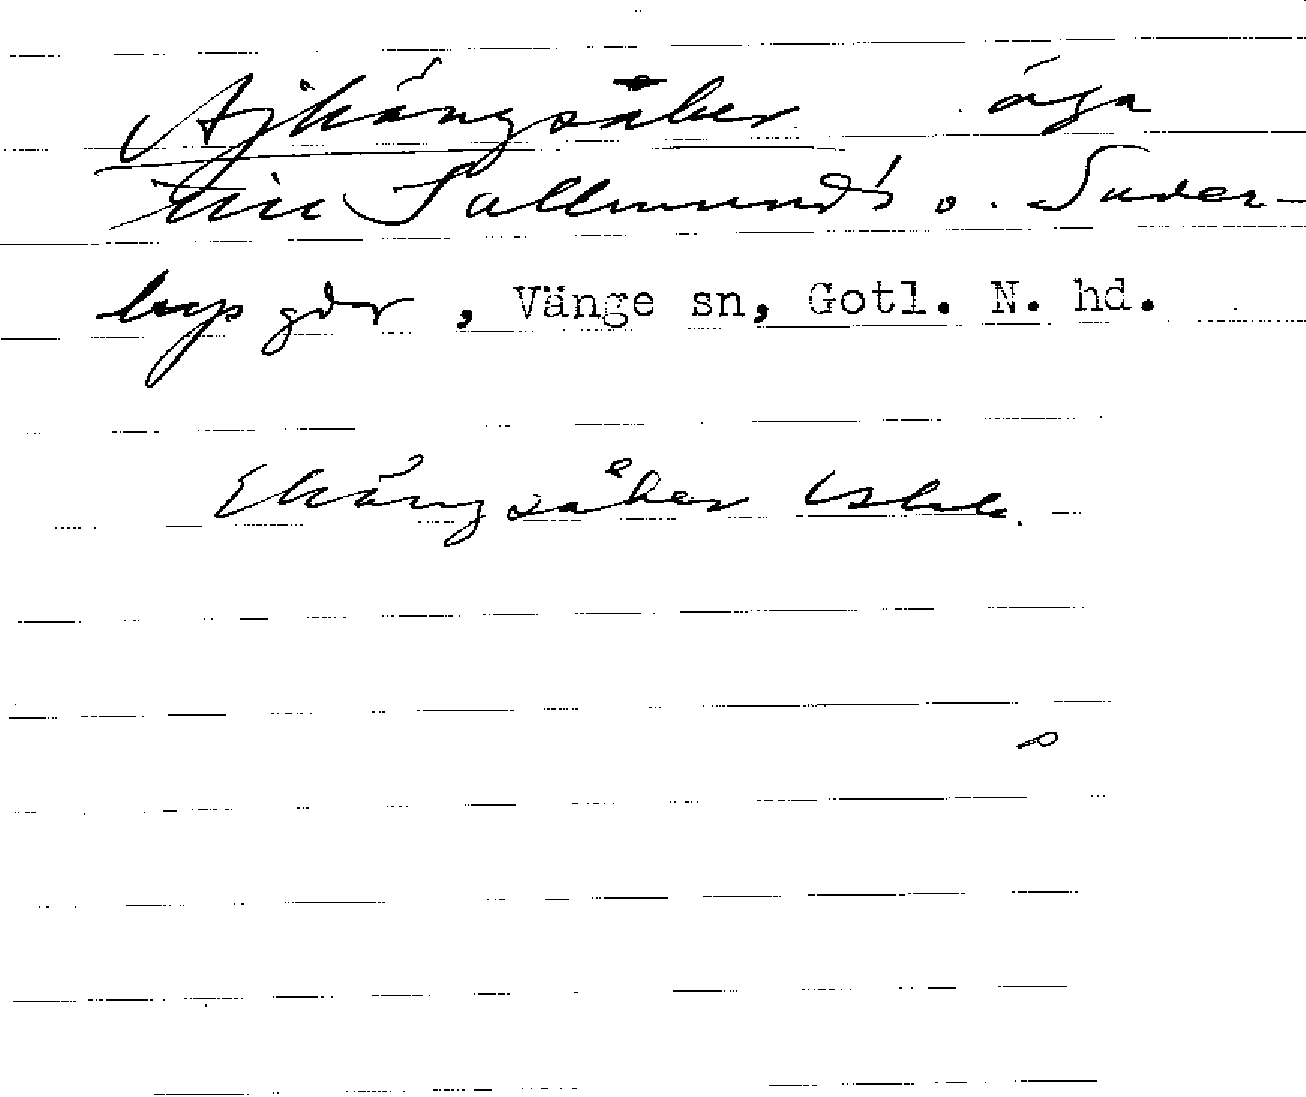 Ajkängsåker äga
till Sallmunds o. Suder-
bys gdr, Vänge sn, Gotl. N. hd.
Ekängsåker